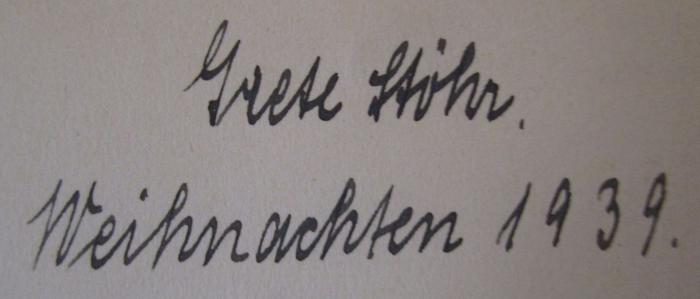 Grete Stöhr.
Weihnachten 1939.